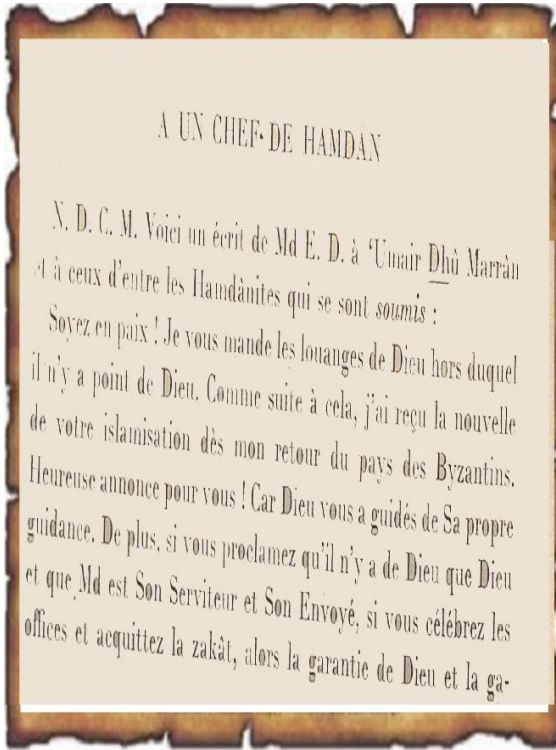 A UN CHEF DE HAMDAN
N. D. C. M. Voici un écrit de Md E. D. à ‘Umair Dhû Marrân
et à ceux d'entre les Hamdânites qui se sont soumis :
Soyez en paix ! Je vous mande les louanges de Dieu hors duquel
il n'y a point de Dieu. Comme suite à cela, j'ai reçu la nouvelle
de votre islamisation dès mon retour du pays des Byzantins.
Heureuse annonce pour vous ! Car Dieu vous a guidés de Sa propre
guidance. De plus, si vous proclamez qu'il n'y a de Dieu que Dieu
et que Md est Son Serviteur et Son Envoyé, si vous célébrez les
offices et acquittez la zakât, alors la garantie de Dieu et la ga-